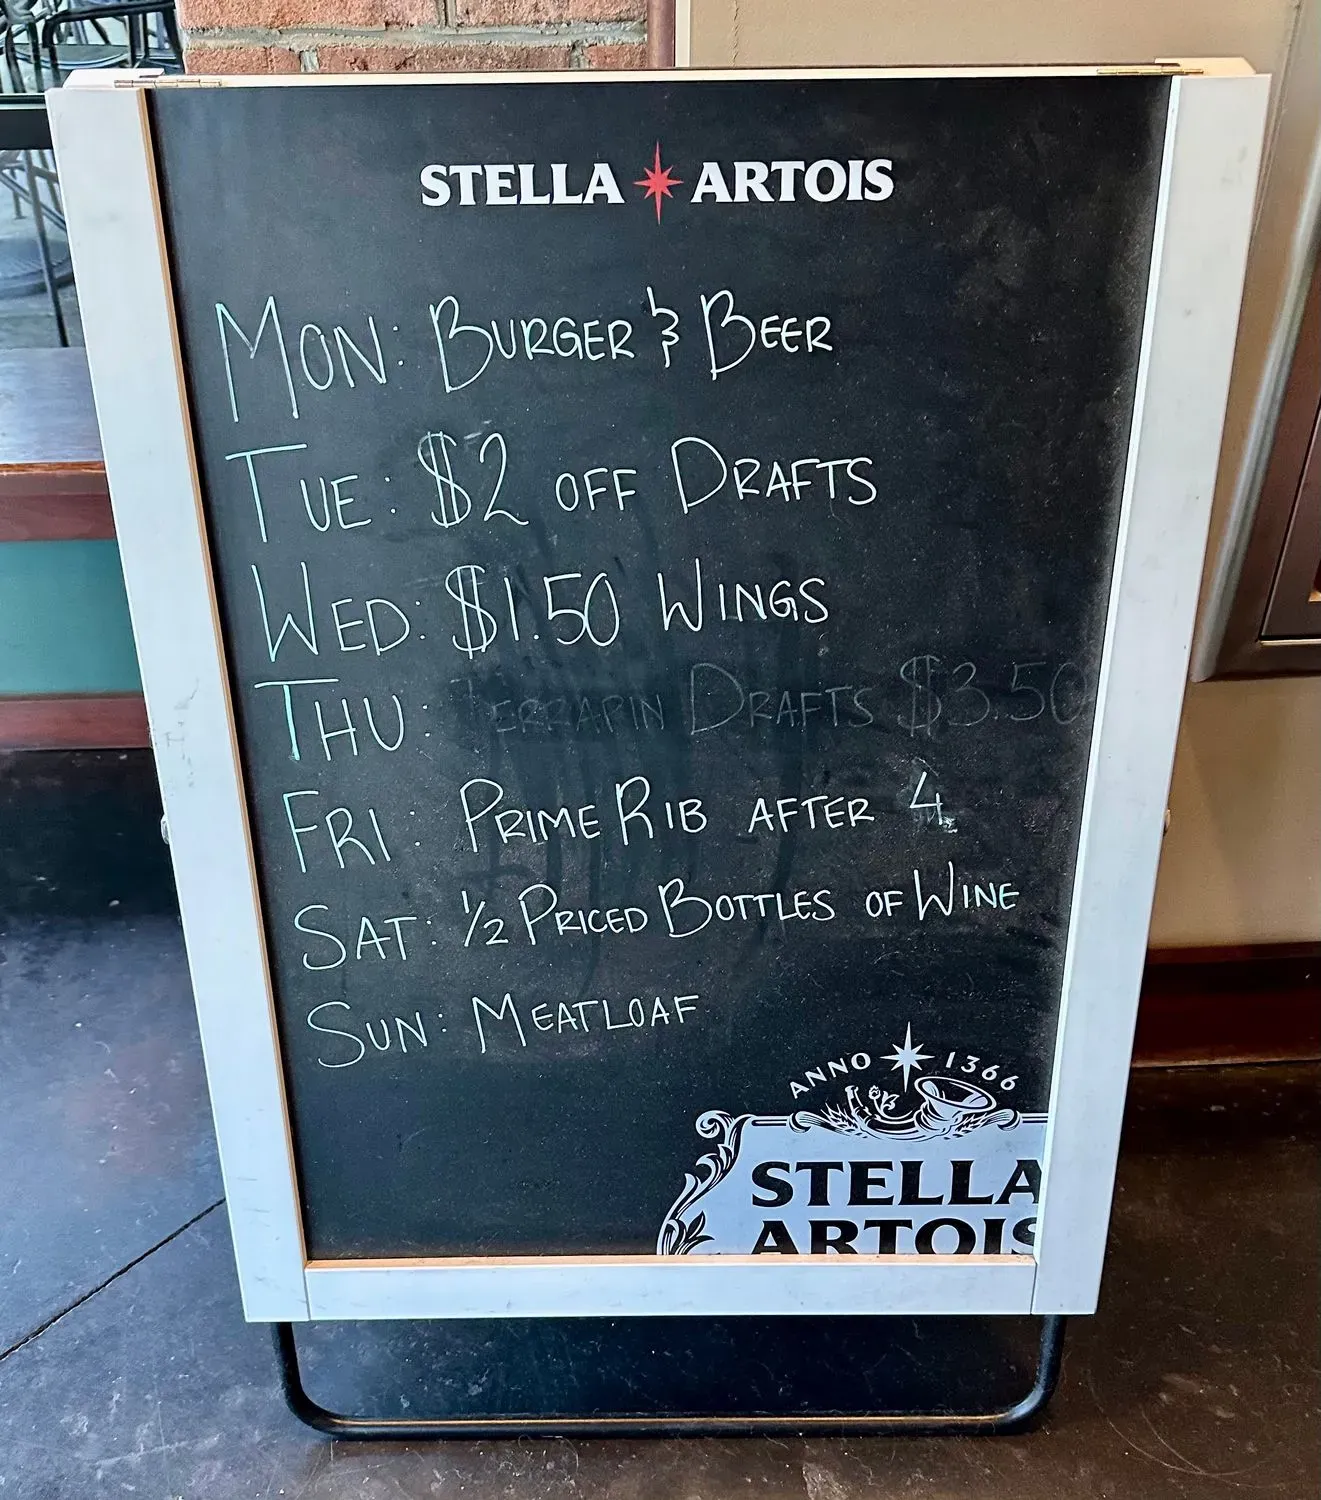 STELLA ARTOIS
MON: BURGER & BEER
TUE: $2 OFF DRAFTS
WED: $1.50 WINGS
THU: TERRAPIN DRAFTS $3.50
FRI: PRIME RIB AFTER 4
SAT: 1/2 PRICED BOTTLES OF WINE
SUN: MEATLOAF
ANNO 1366
STELLA
ARTOIS